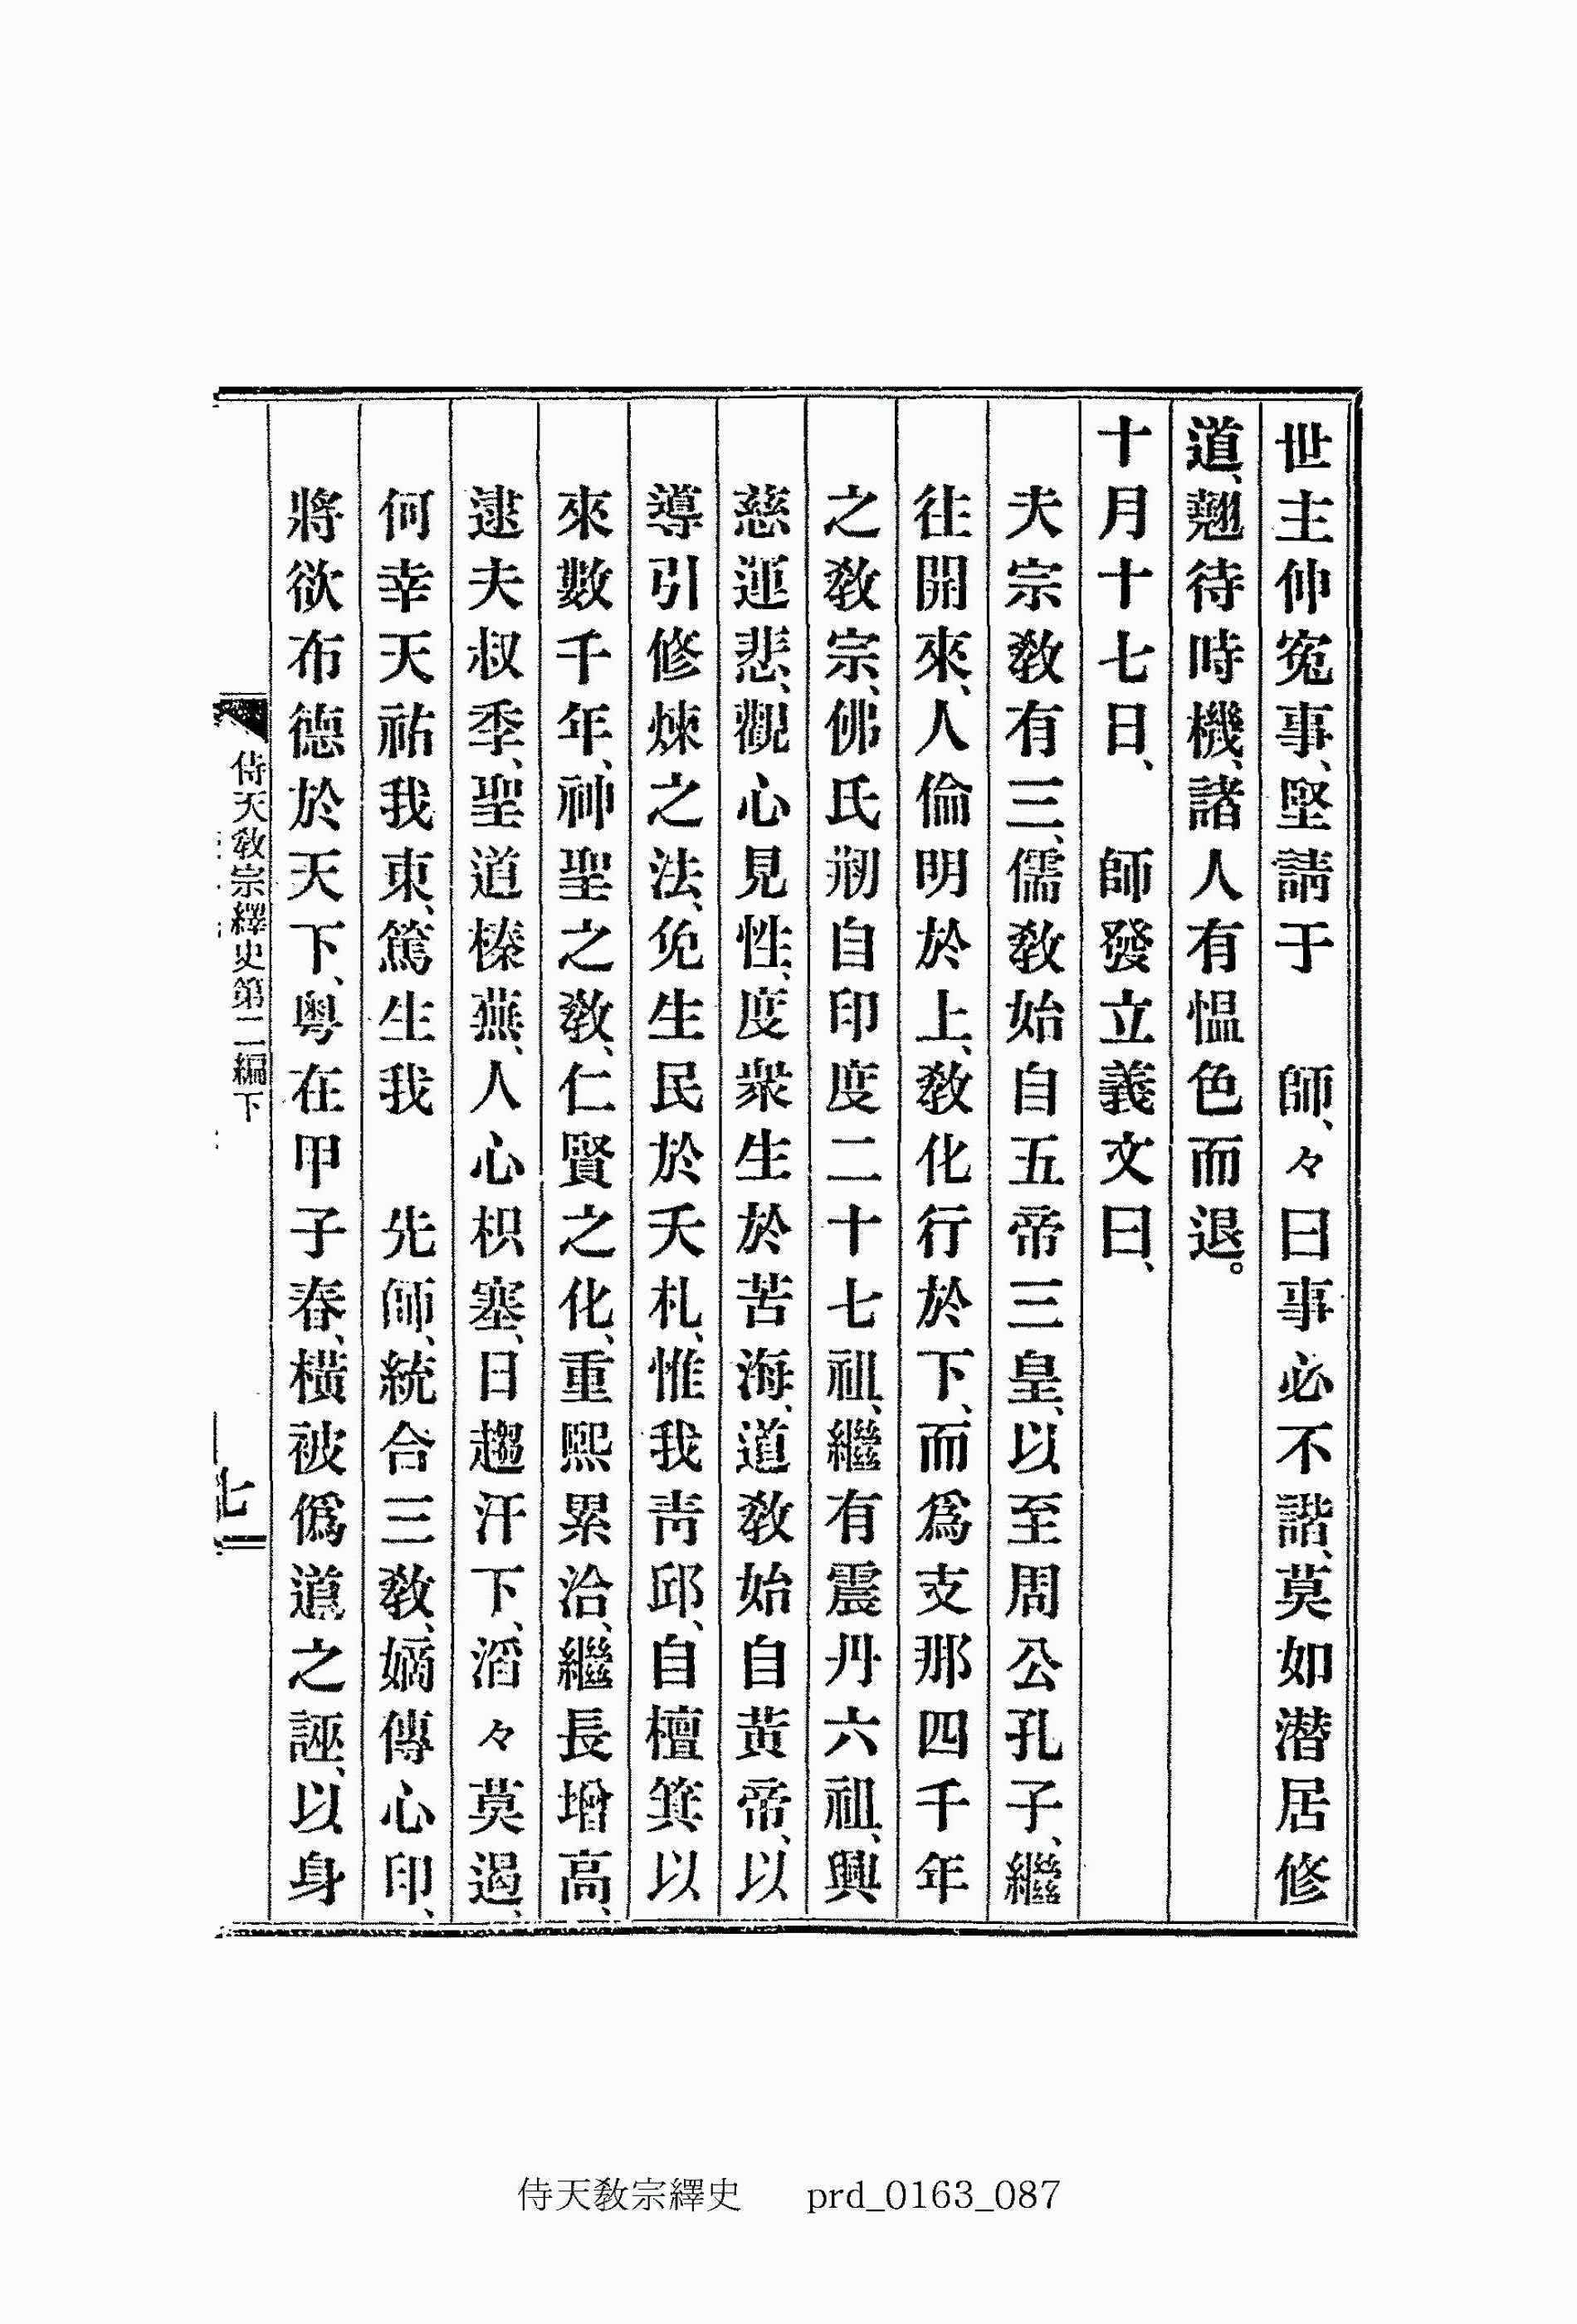 世主伸寃事、堅請于　師、々曰事必不諧、莫如潛居修
道、翹待時機、諸人有慍色而退。
十月十七日、　師發立義文曰、
夫宗敎有三、儒敎始自五帝三皇、以至周公孔子、繼
往開來、人倫明於上、敎化行於下、而爲支那四千年
之敎宗、佛氏刱自印度二十七祖、繼有震丹六祖、興
慈運悲、觀心見性、度衆生於苦海、道敎始自黃帝、以
導引修煉之法、免生民於夭札、惟我靑邱、自檀箕以
來數千年、神聖之敎、仁賢之化、重熙累洽、繼長增高、
逮夫叔季、聖道榛蕪、人心枳塞、日趨汗下、滔々莫遏、
何幸天祐我東、篤生我　先師、統合三敎、嫡傳心印、
將欲布德於天下、粤在甲子春、橫被僞道之誣、以身
侍天敎宗繹史第二編下
七
侍天敎宗繹史　prd_0163_087